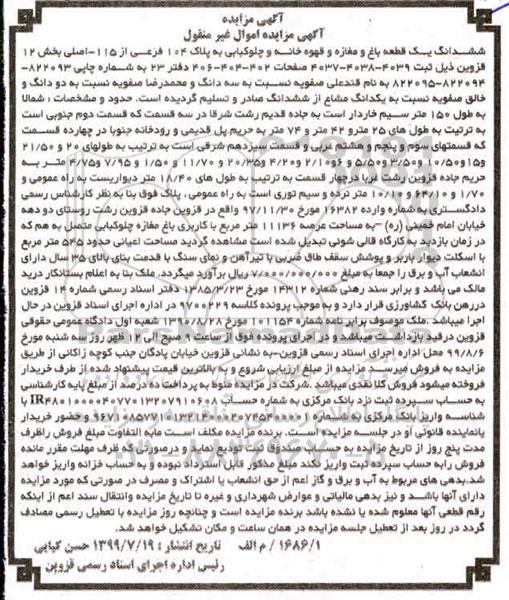 آگهی مزایده
آگهی مزایده اموال غیر منقول
ششدانگ یک قطعه باغ و مغازه و قهوه خانه و چلوکبابی به پلاک ۱۰۴ فرعی از ۱۱۵-اصلی بخش ۱۲
قزوین ذیل ثبت ۴۰۳۹-۴۰۳۸-۴۰۳۷ صفحات ۴۰۲-۴۰۴-۴۰۶ دفتر ۲۳ به شماره چاپی ۸۲۲۰۹۳-
۸۲۲۰۹۴-۸۲۲۰۹۵ به نام قندعلی صفویه نسبت به سه دانگ و محمدرضا صفویه نسبت به دو دانگ و
خالق صفویه نسبت به یکدانگ مشاع از ششدانگ صادر و تسلیم گردیده است. حدود و مشخصات : شمالا
به طول ۱۵۰ متر سیم خاردار است به جاده قدیم رشت شرقا در سه قسمت که قسمت دوم جنوبی است
به ترتیب به طول های ۲۵ مترو ۴۲ متر و ۷۴ متر به حریم پل قدیمی و رودخانه جنوبا در چهارده قسمت
که قسمتهای سوم و پنجم و هشتم غربی و قسمت سیزدهم شرقی است به ترتیب به طولهای ۲۰ و ۲۱/۵۰
و۱۵و۱۰/۵۰و۳/۵۰و۵/۵۰ و۲/۱۰و۴/۲۰ و۲۰/۳۵ و ۱۱/۷۰ و ۱/۵۰ و ۷/۹۵ و ۴/۷۵ متر به
حریم جاده قزوین رشت غربا درچهار قسمت به ترتیب به طول های ۱۸/۴۰ متر دیواریست به راه عمومی و
۱/۷۰ و ۶۴/۱۰ و ۱۰/۱۰ متر نرده و سیم توری است به راه عمومی. پلاک فوق بنا به نظر کارشناس رسمی
دادگستری به شماره وارده ۱۶۳۸۲ مورخ ۹۷/۱۱/۳۰ واقع در قزوین جاده قزوین رشت روستای دو دهه
خیابان امام خمینی (ره) -به مساحت عرصه ۱۱۱۳۶ متر مربع با کاربری باغ مغازه چلوکبابی متصل به هم که
در زمان بازدید به کارگاه قالی شوئی تبدیل شده است مشاهده گردید مساحت اعیانی حدود ۵۴۵ متر مربع
با اسکلت دیوار باربر و پوشش سقف طاق ضربی با تیرآهن و نمای سنگ با قدمت بنای بالای ۳۵ سال دارای
انشعاب آب و برق را جمعا به مبلغ ۷/۰۰۰/۰۰۰/۰۰۰ ریال برآورد میگردد. ملک بنا به اعلام بستانکار درید
مالک می باشد و برابر سند رهنی شماره ۱۴۳۱۲ مورخ ۱۳۸۵/۳/۲۳ دفتر اسناد رسمی شماره ۱۴ قزوین
دررهن بانک کشاورزی قرار دارد و به موجب پرونده کلاسه ۹۷۰۰۲۲۹ در اداره اجرای اسناد قزوین در حال
اجرا میباشد. ملک موصوف برابر نامه شماره ۱۰۱۱۵۴ مورخ ۱۳۹۴/۸/۲۸ شعبه اول دادگاه عمومی حقوقی
قزوین درقید بازداشت میباشد و در اجرای پرونده فوق از ساعت ۹ صبح الی ۱۲ ظهر روز سه شنبه مورخ
۹۹/۸/۶ محل اداره اجرای اسناد رسمی قزوین-به نشانی قزوین خیابان پادگان جنب کوچه زاکانی از طریق
مزایده به فروش میرسد مزایده از مبلغ ارزیابی شروع و به بالاترین قیمت پیشنهاد شده از طرف خریدار
فروخته میشود فروش کلا نقدی میباشد .شرکت در مزایده منوط به پرداخت ده درصد از مبلغ پایه کارشناسی
به حساب سپرده ثبت نزد بانک مرکزی به شماره حساب IR۴۸۰۱۰۰۰۰۴۰۷۷۰۱۳۲۰۷۹۱۰۶۰۸ با
شناسه واریز بانک مرکزی به شماره و حضور خریدار
یانماینده قانونی او در جلسه مزایده است. برنده مزایده مکلف است مابه التفاوت مبلغ فروش راظرف
مدت پنج روز از تاریخ مزایده به حساب صندوق ثبت تودیع نماید و درصورتی که ظرف مهلت مقرر مانده
فروش رابه حساب سپرده ثبت واریز نکند مبلغ مذکور قابل استرداد نبوده و به حساب خزانه واریز خواهد
شد.بدهی های مربوط به آب و برق و گاز اعم از حق انشعاب یا اشتراک و مصرف در صورتی که مورد مزایده
دارای آنها باشد و نیز بدهی مالیاتی و عوارض شهرداری و غیره تا تاریخ مزایده وانتقال سند اعم از اینکه
رقم قطعی آنها معلوم شده یا نشده باشد برنده مزایده است و چنانچه روز مزایده با تعطیل رسمی مصادف
گردد در روز بعد از تعطیل جلسه مزایده در همان ساعت و مکان تشکیل خواهد شد.
۱۶۸۶/۱ / م الف تاریخ انتشار : ۱۳۹۹/۷/۱۹ حسن کیایی
رئیس اداره اجرای اسناد رسمی قزوین